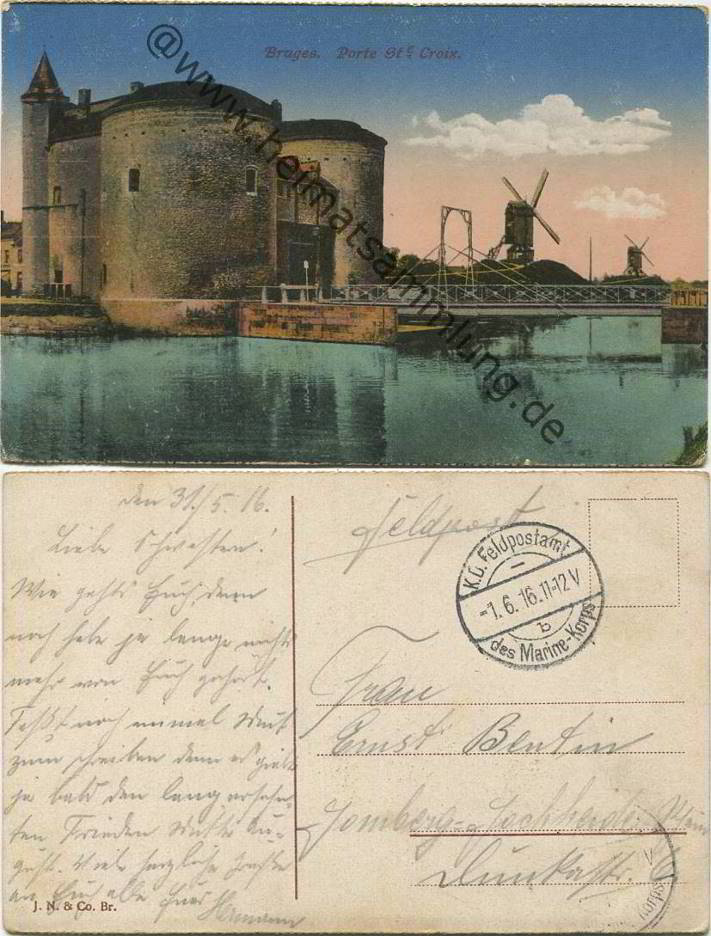 Bruges. Porte Ste Croix.
@www.heimatsammlung.de
den 31./5. 16.
Liebe Schwestern!
Wie gehts Euch, denn
noch habe ja lange nichts
mehr von Euch gehört.
noch einmal Mut
zum schreiben denn es giebt
ja bald den lang ersehn-
ten Frieden Mitte Au-
gust. Viele herzliche Grüße
an Euch alle Euer
Hermann
J. N. & Co. Br.
Feldpost
K.D. Feldpostamt
-1.6.16.11-12V
b
des Marine-Korps
Frau
Ernst Bentin
Homberg-Hochheide